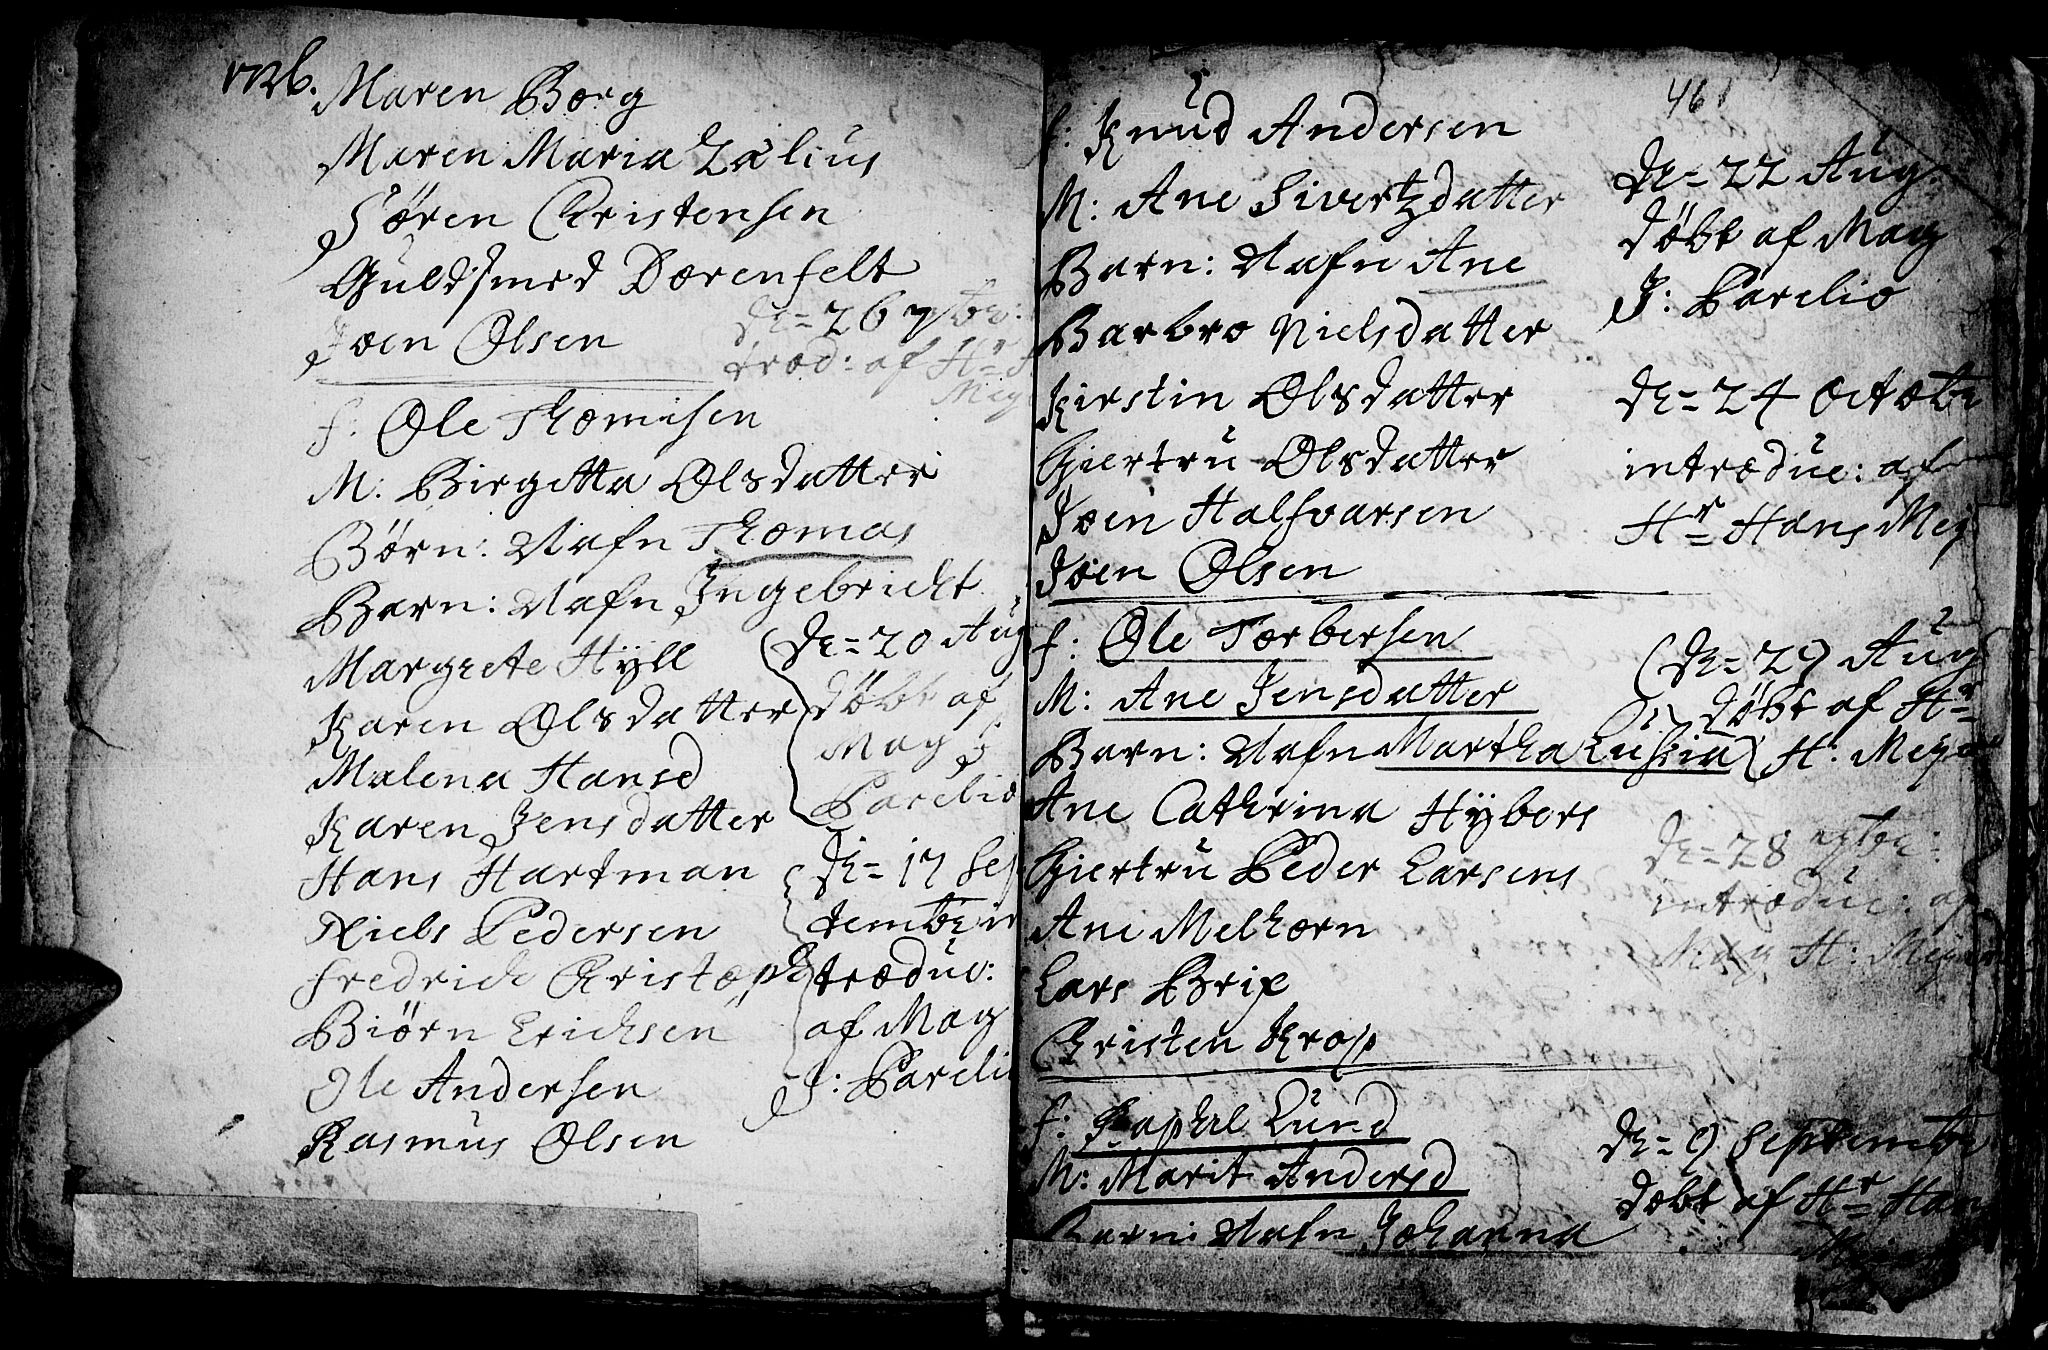 1726.
Maren Borg
Maren Maria Zälius
Sören Christensen
Guldsmed Dorenfelt
Joen Olsen
d: = 26 7tbr:
trod: af Hr
f: Ole Thomisen
M: Birgitta Olsdatter
Børn: Nafn Thomas
Barn: Nafn Ingebricht
Margrete Hÿll
Karen Olsdatter
Malena Hansd
Karen Jensdatter
Hans Hartman
Niels Pedersen
Fredrich Christoph
Biørn Erichsen
Ole Andersen
Rasmus Olsen
d: = 20 Aug
døbt af
Mag J
Parelio
d: = 17 Sep
tembr in
troduc:
af Mag
J: Pareli
461
f: Knud Andersen
M: Ane Sivertzdatter
Barn: Nafn Ane
Barbro Nielsdatter
Kirstin Olsdatter
Giertru Olsdatter
Joen Halfvarsen
Joen Olsen
d: = 22 Aug:
døbt af Mag
J: Parelio
d: = 24 octobr
introduc: af
Hr Hans Mey
f: Ole Torbersen
M: Ane Jensdatter
Barn: Nafn Martha Lusia
Ane Cathrina Hÿbers
Giertru Peder Larsens
Ane Melhorn
Lars Brix
Christen Krop
d: = 29 Aug
døbt af Hr
H: Meyer
d: = 28
introduc: af
Mag H: Meyer
f: Raphel Lund
M: Marit Andersd
Barn: Nafn Johanna
d: = 9 Septembr
døbt af Hr Han